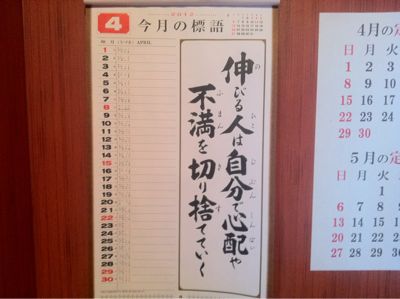 2012
4 今月の標語
卯月(うづき) APRIL
1
2
3
4
5
6
7
8
9
10
11
12
13
14
15
16
17
18
19
20
21
22
23
24
25
26
27
28
29
30
伸びる人は自分で心配や
不満を切り捨てていく
4月の定
日 月 火
1 2 3
8 9 10
15 16 17
22 23 24
29 30
5月の定
日 月 火 水
1
6 7 8
13 14 15
20 21 22
27 28 29